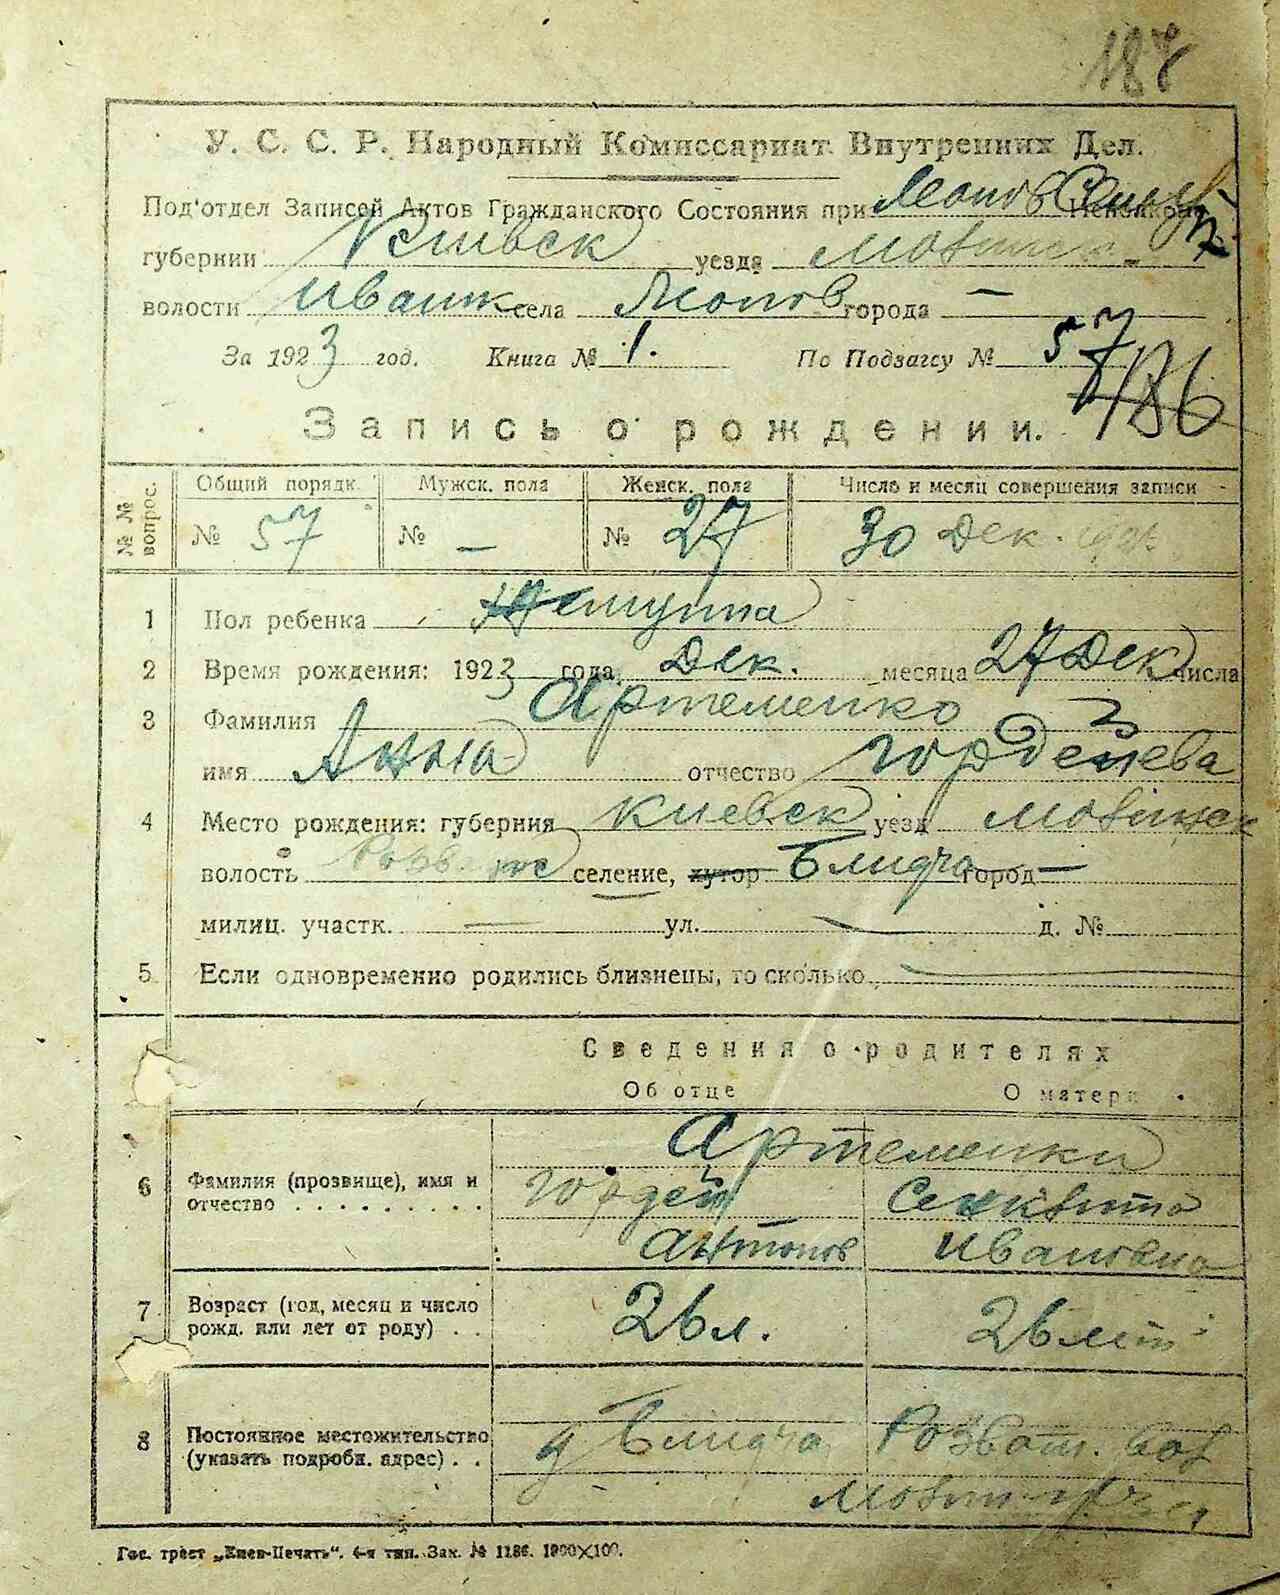 У. С. С. Р. Народный Комиссариат Внутренних Дел.
Под'отдел Записей Актов Гражданского Состояния при
губернии Киевск уезда
волости Иванк села города —
За 1923 год. Книга № 1. По Подзагсу № 57
186
Запись о рождении.
№ № вопрос. Общий порядк. Мужск. пола Женск. пола Число и месяц совершения записи
№ 57 № — № 27 30 Дек.
1 Пол ребенка
2 Время рождения: 1923 года Дек. месяца 27 Дек числа
3 Фамилия Артеменко
имя Анна отчество Гордеева
4 Место рождения: губерния Киевск уезд
волость селение, хутор Блидча город —
милиц. участк. — ул. — д. №
5 Если одновременно родились близнецы, то сколько —
Сведения о родителях
Об отце О матери
Артеменки
6 Фамилия (прозвище), имя и отчество Гордей
Антонов Ивановна
7 Возраст (год, месяц и число рожд. или лет от роду) 26 л. 26 лет
8 Постоянное местожительство (указать подробн. адрес) Блидча Розваж. вол
Гос. трест „Киев-Печать“. 4-я тип. Зак. № 1186. 1000×100.